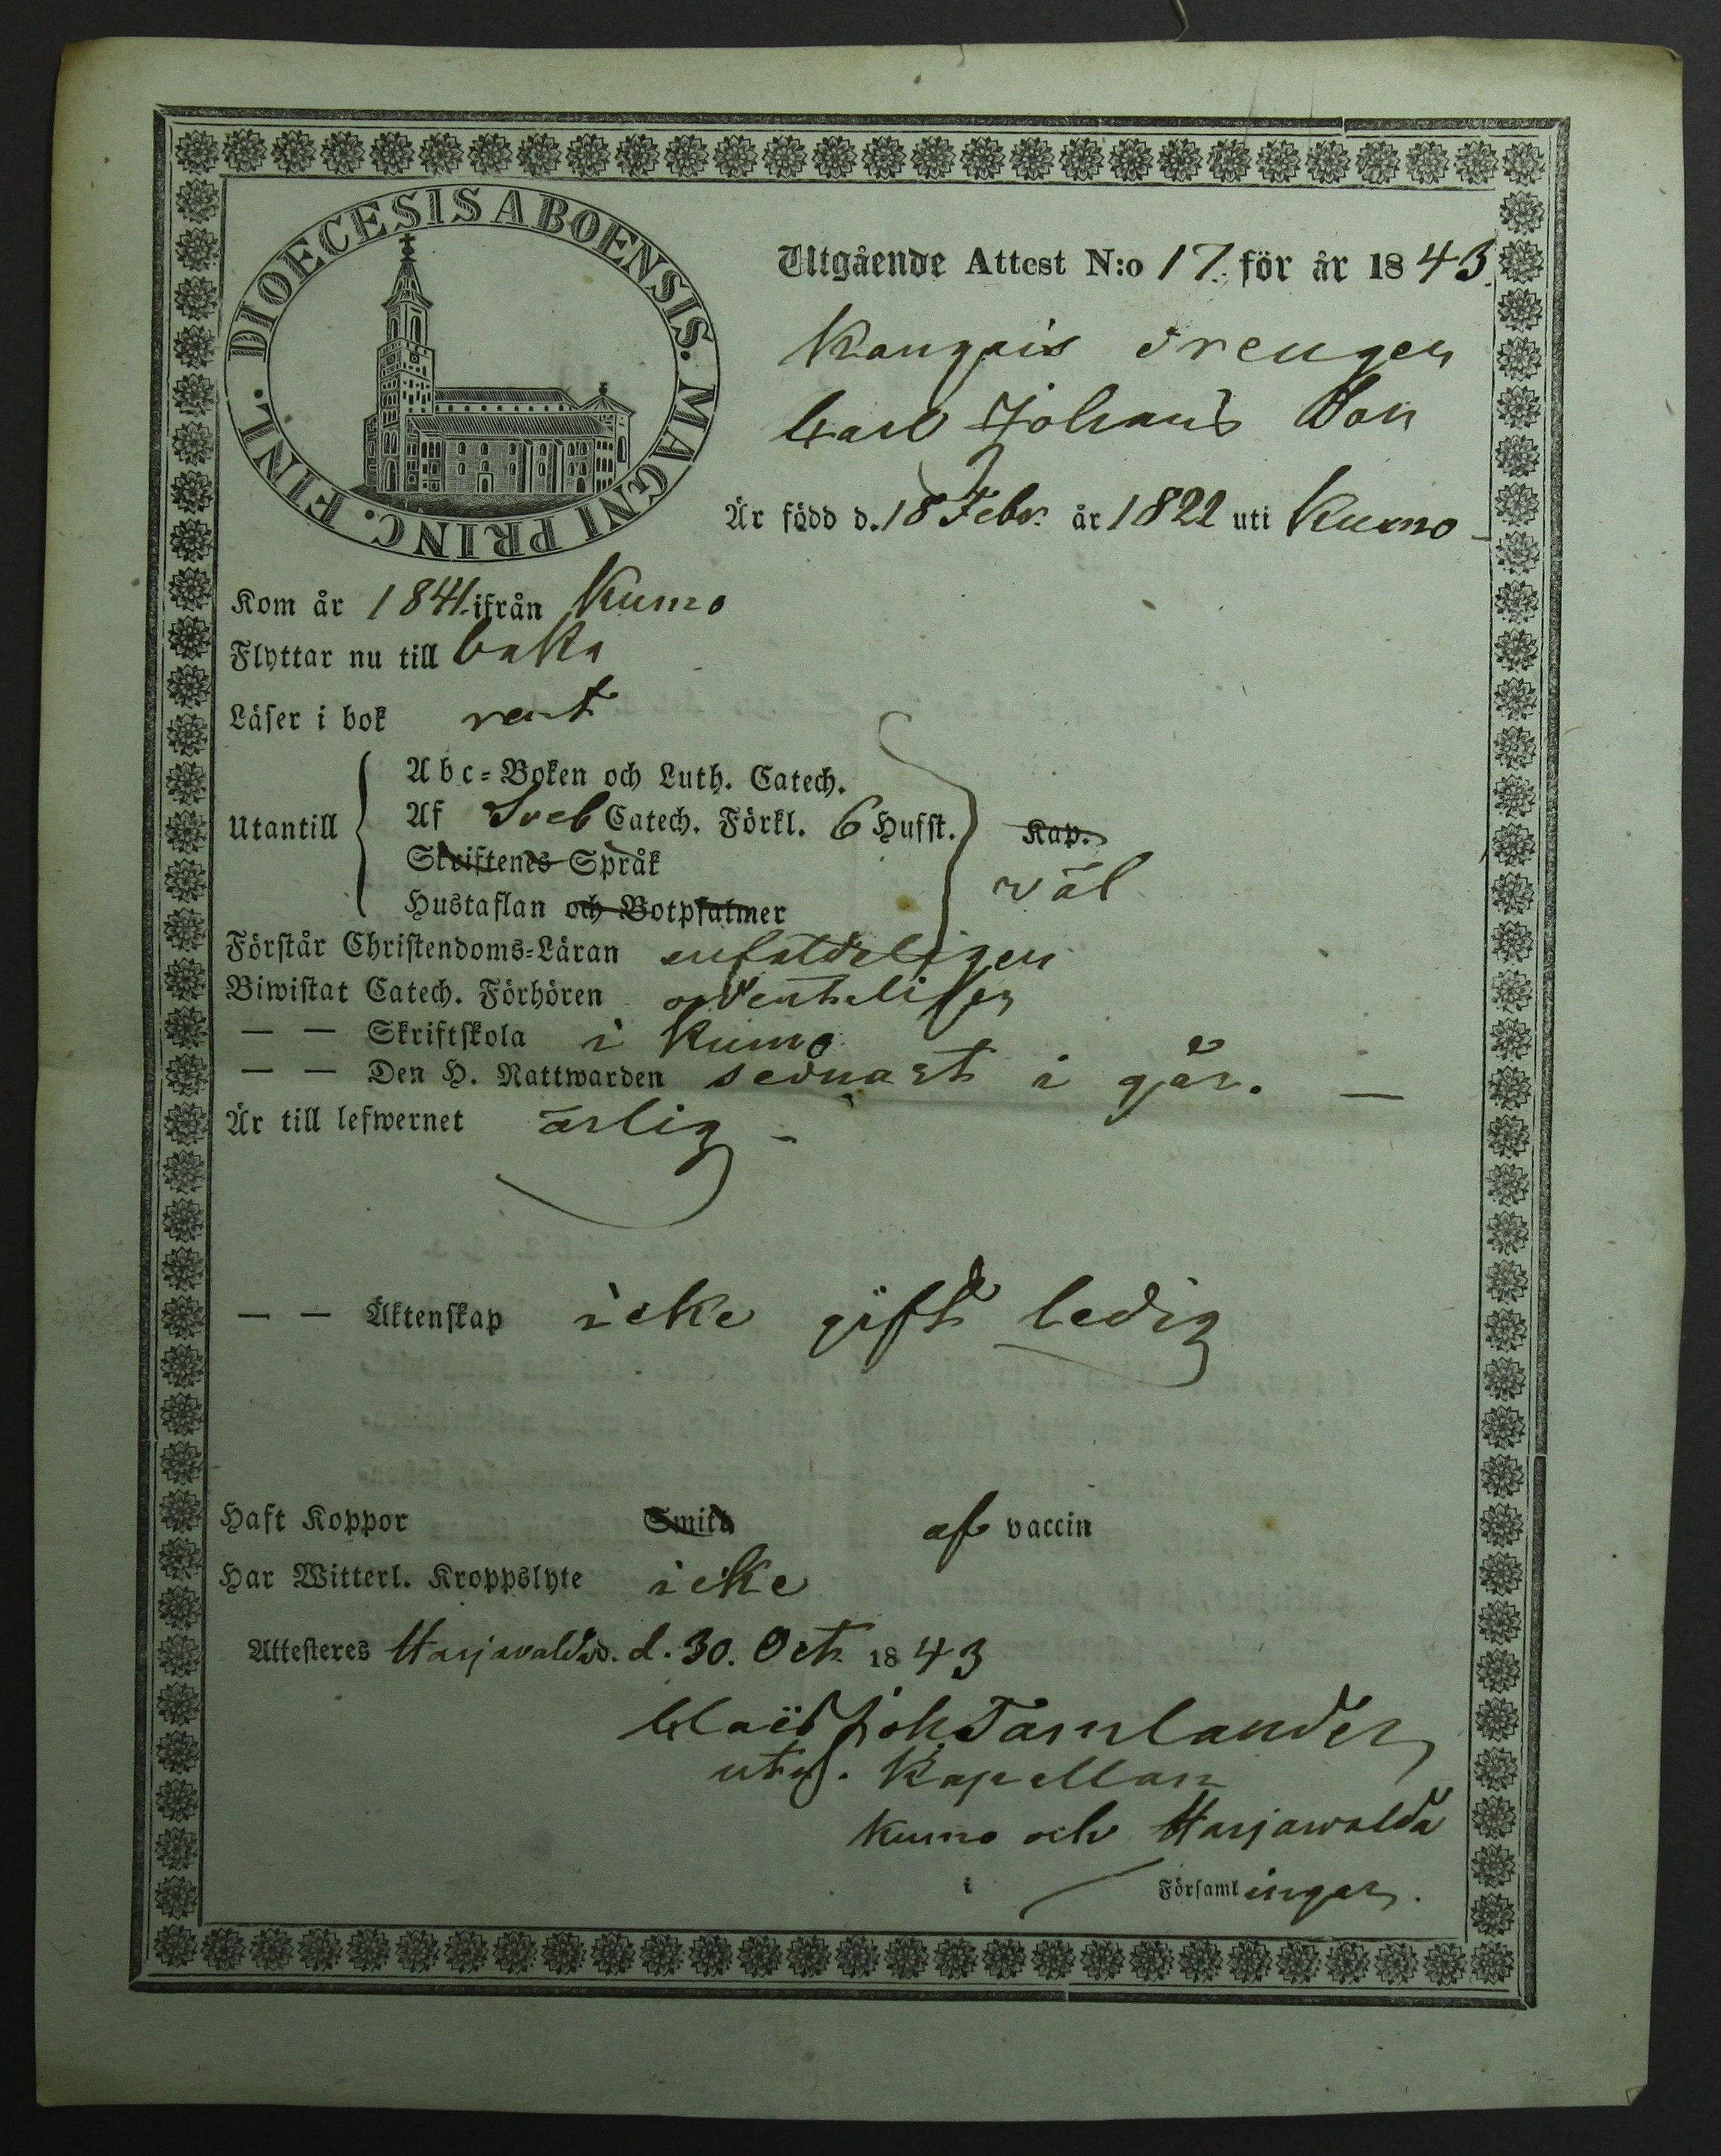 DIOECESIS ABOENSIS. MAGNI PRINC. FINL.
Utgående Attest N:o 17. för år 1843.
Kangais drengen
Carl Johans Son
Är född d. 18 Febr. år 1822 uti Kumo
Kom år 1841 ifrån Kumo
Flyttar nu till baka
Läser i bok rent
Utantill
Abc-Boken och Luth. Catech.
Af Sveb Catech. Förkl. 6 Hufst. Kap.
Skriftenes Språk
väl
Hustaflan och Botpsalmer
Förstår Christendoms-Läran enfaldeligen
Biwistat Catech. Förhören ordenteligen
— — Skriftskola i Kumo
— — Den H. Nattwarden sednast i går. —
Är till lefwernet ärlig -
— — Äktenskap icke gift ledig
Haft Koppor Smitt af vaccin
Har Witterl. Kroppslyte icke
Attesteres Harjavalda d. 30. Oct. 1843
Claës Joh Tamlander
Kapellan
Kumo och Harjawalda
i Församlingar.